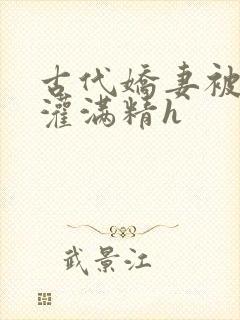 古代嬌妻被
灌满精h
武景江